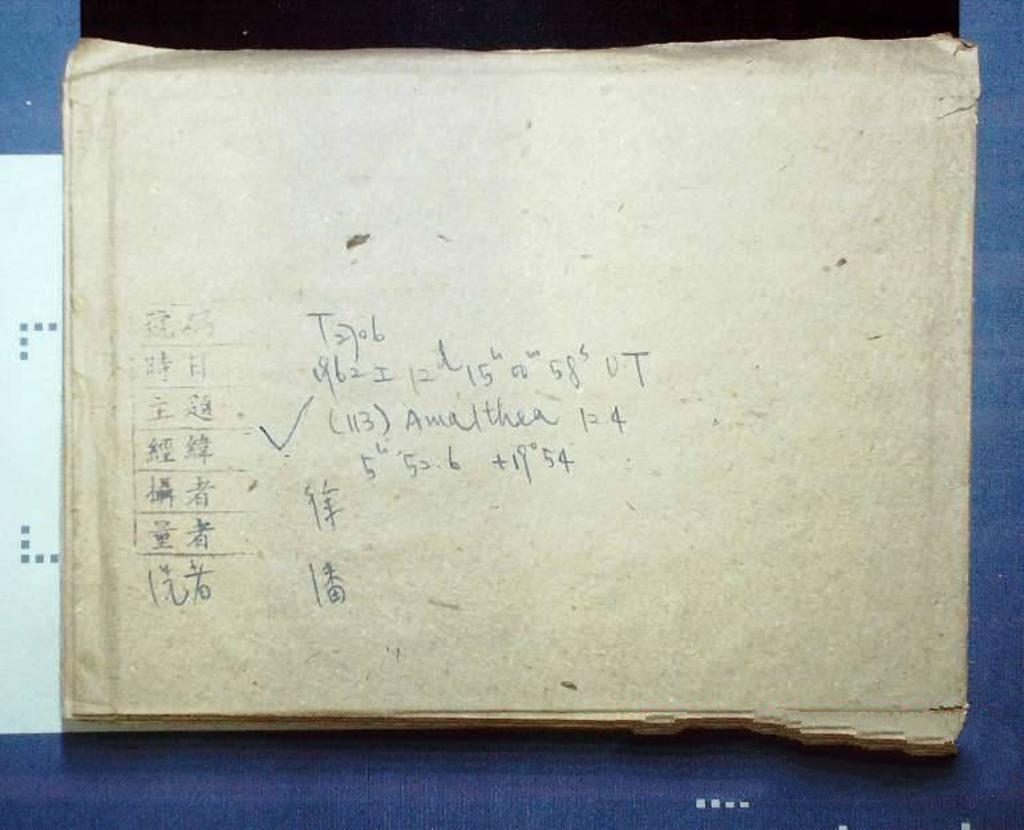 號碼 T2706
時日 1962 I 12ᵈ 15ʰ 00ᵐ 58ˢ UT
主題 (113) Amalthea 12.4
經緯 5ʰ 52.6 +19° 54
攝者 徐
量者
洗者 潘